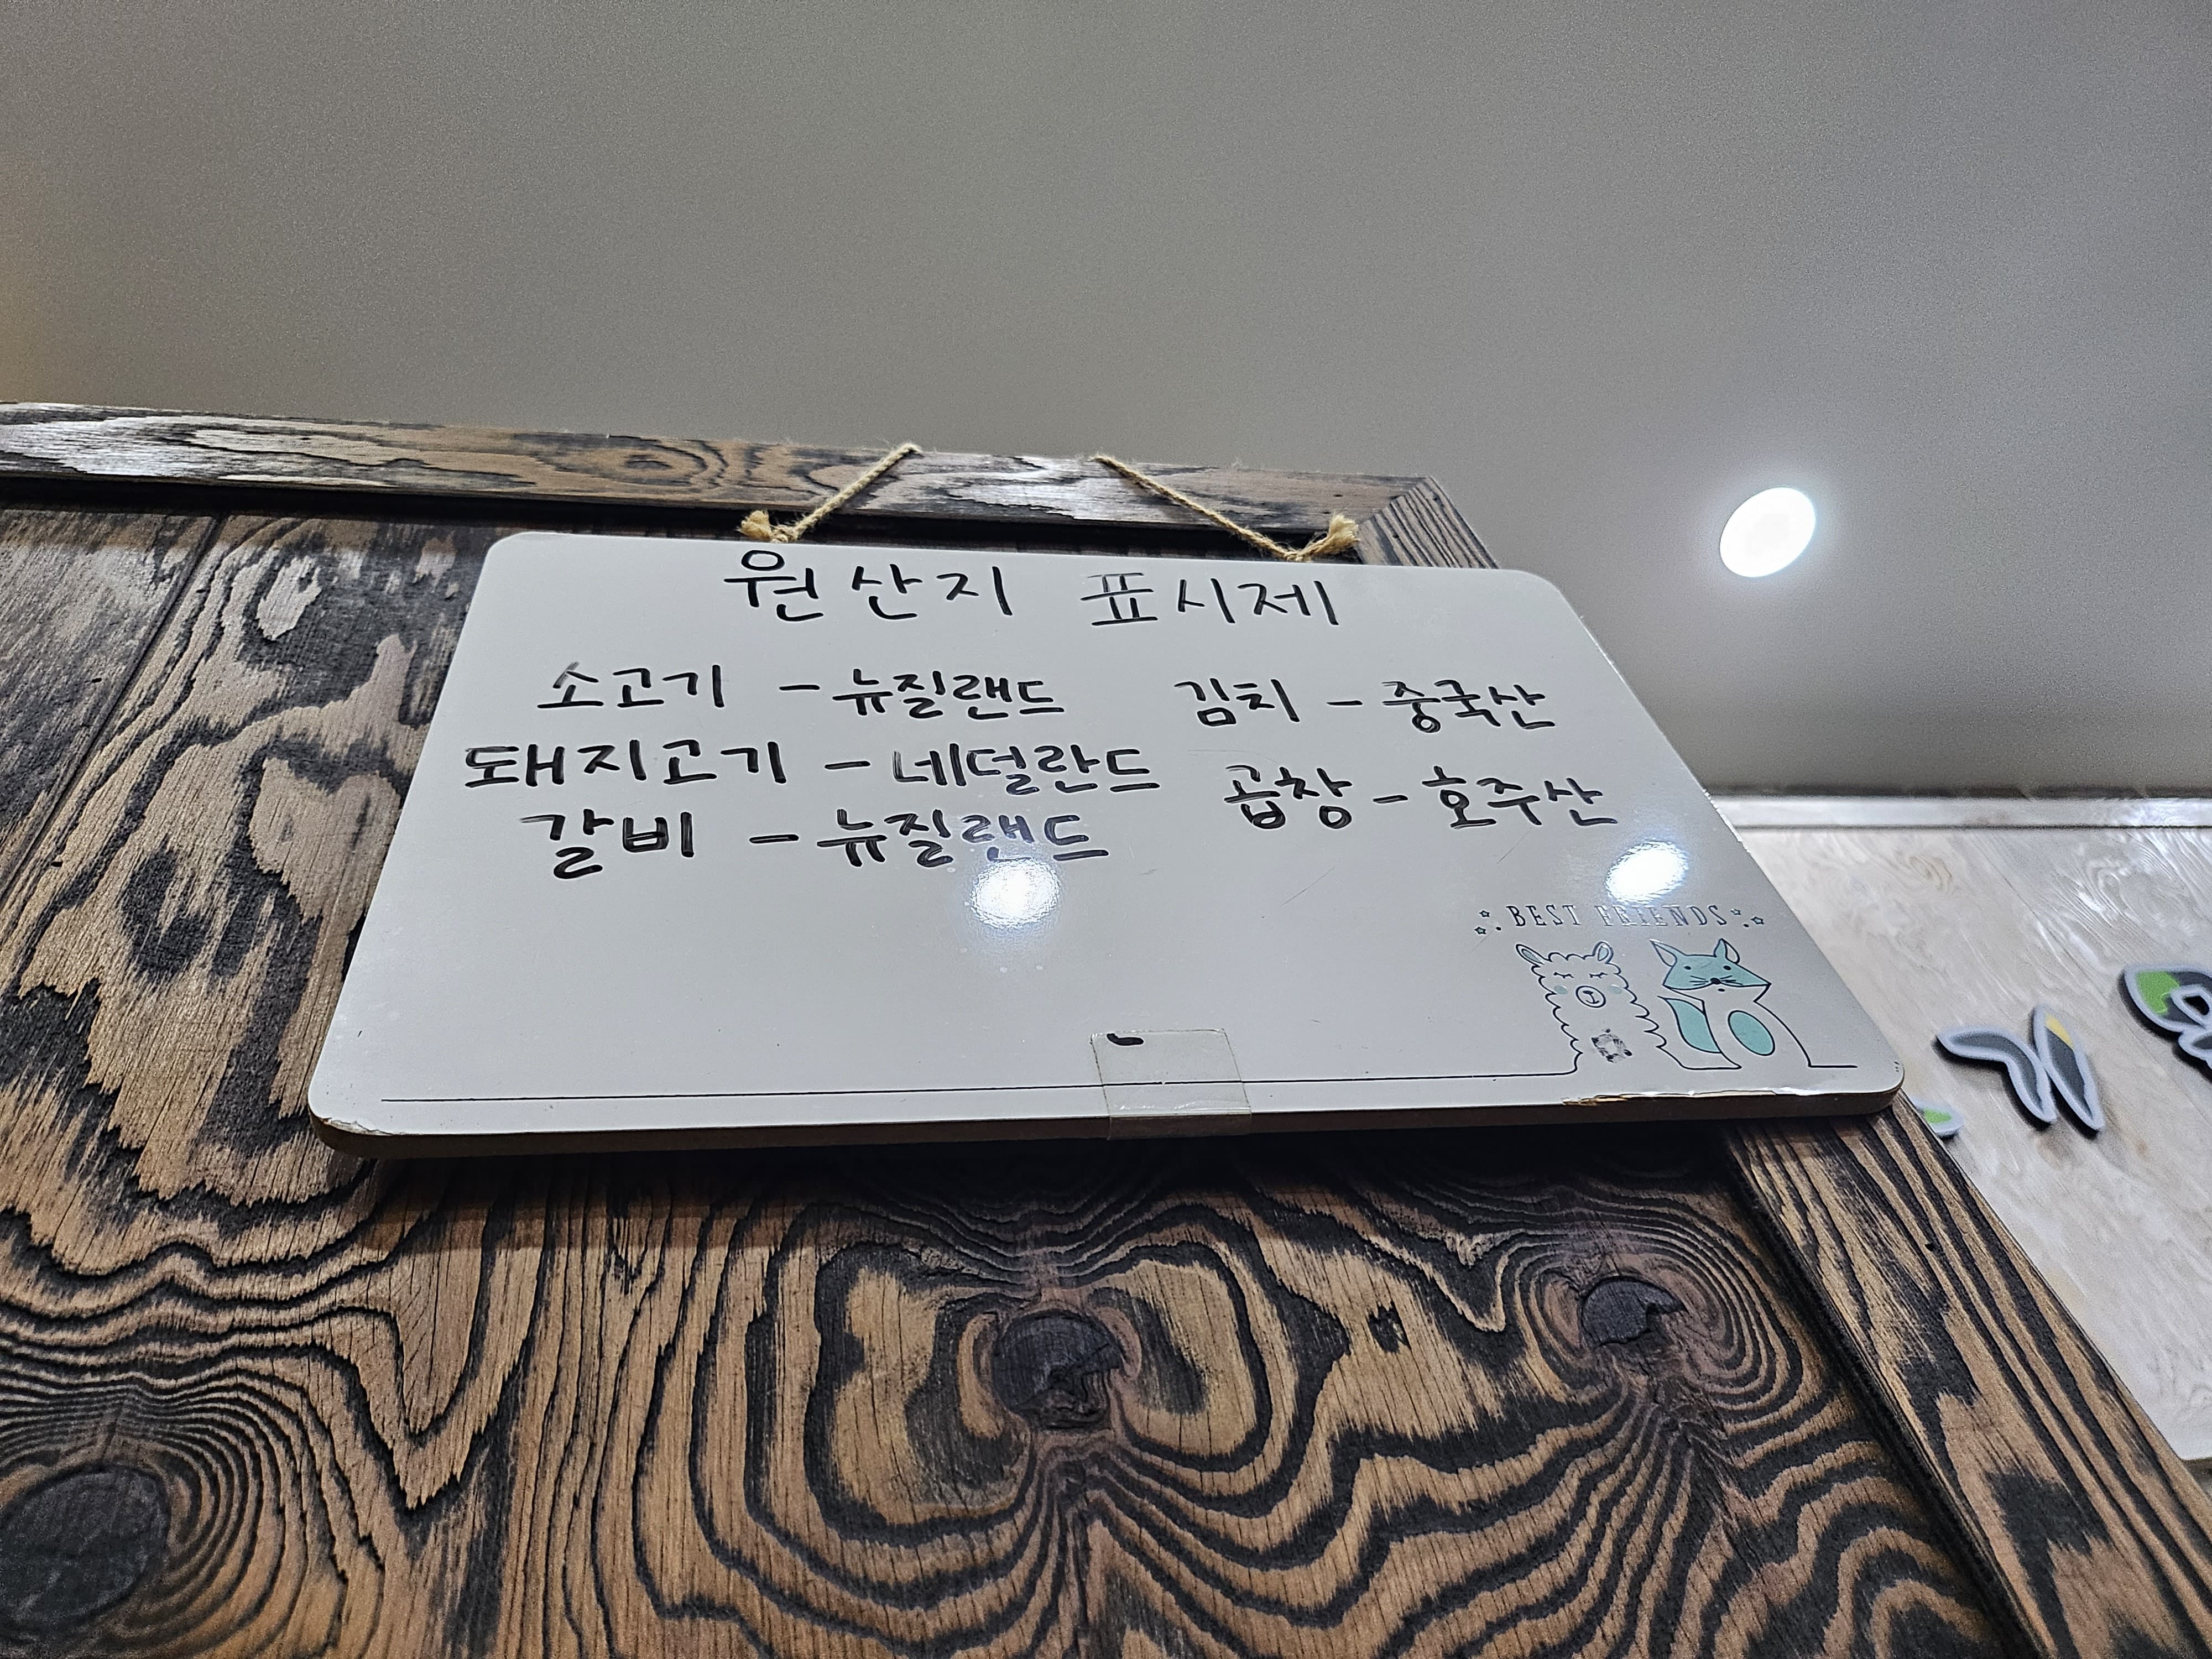 원산지 표시제
소고기 - 뉴질랜드
돼지고기 - 네덜란드
갈비 - 뉴질랜드
김치 - 중국산
곱창 - 호주산
BEST FRIENDS